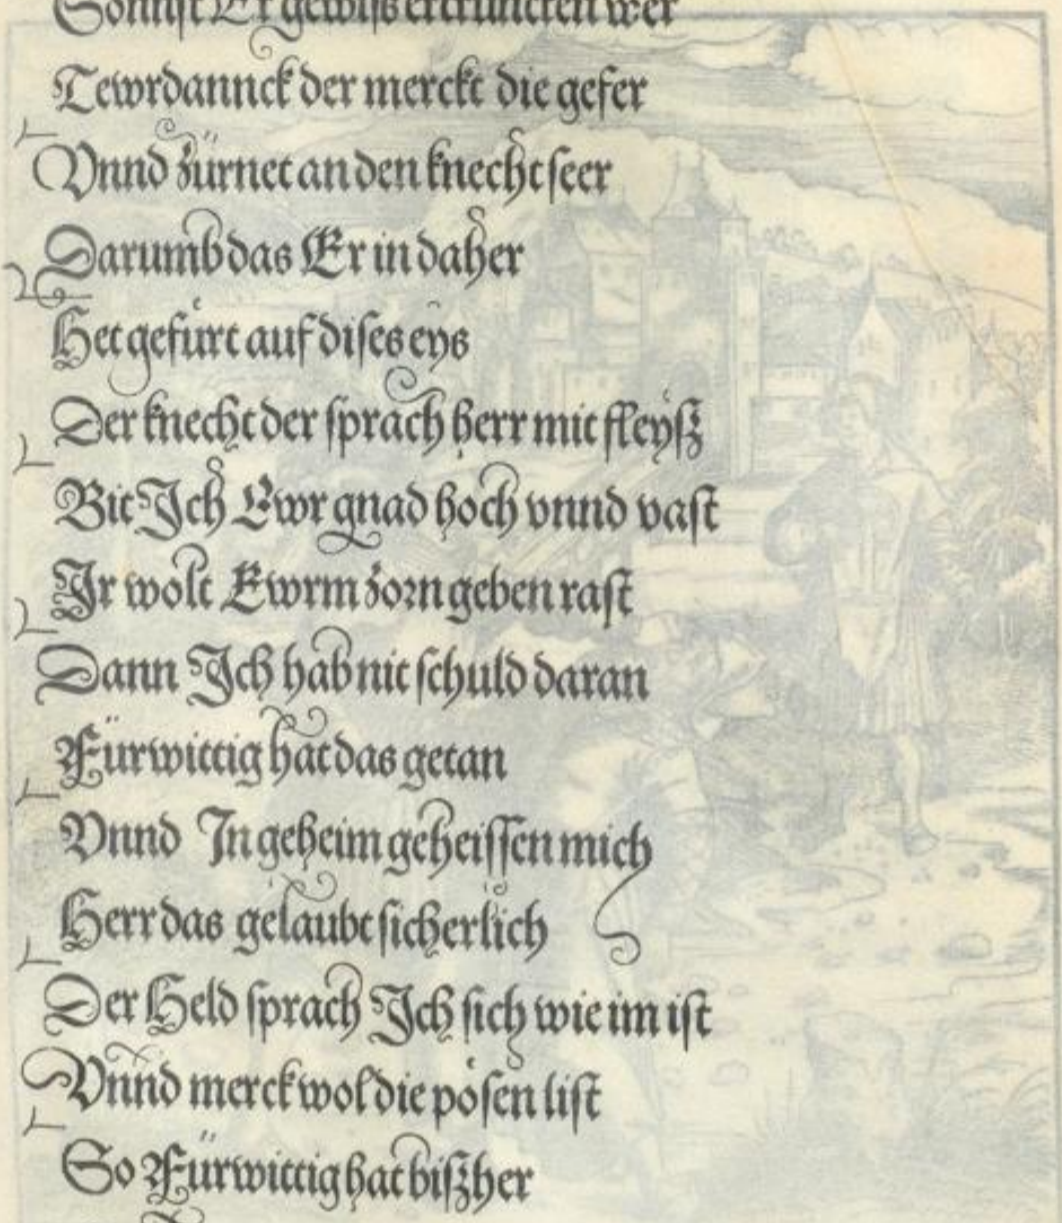 Sonnst Er gewiſs ertruncken wer
Tewrdannck der merckt die gefer
Vnnd zürnet an den knecht ſeer
Darumb das Er in daher
Het gefůrt auf diſes eys
Der knecht der ſprach herr mit fleyſz
Bit Ich Ewr gnad hoch vnnd vaſt
Ir wolt Ewrm zorn geben raſt
Dann Ich hab nit ſchuld daran
Fürwittig hat das getan
Vnnd In geheim geheiſſen mich
Herr das gelaubt ſicherlich
Der Held ſprach Ich ſich wie im iſt
Vnnd merck wol die pöſen liſt
So Fürwittig hat biſzher